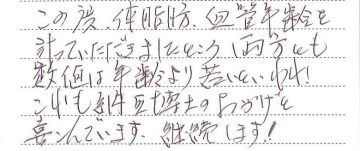 この度、体脂肪、血管年齢を
計っていただきましたところ両方とも
数値は年齢より若いといわれ!
これも 博士のおかげと
喜んでいます。継続します!